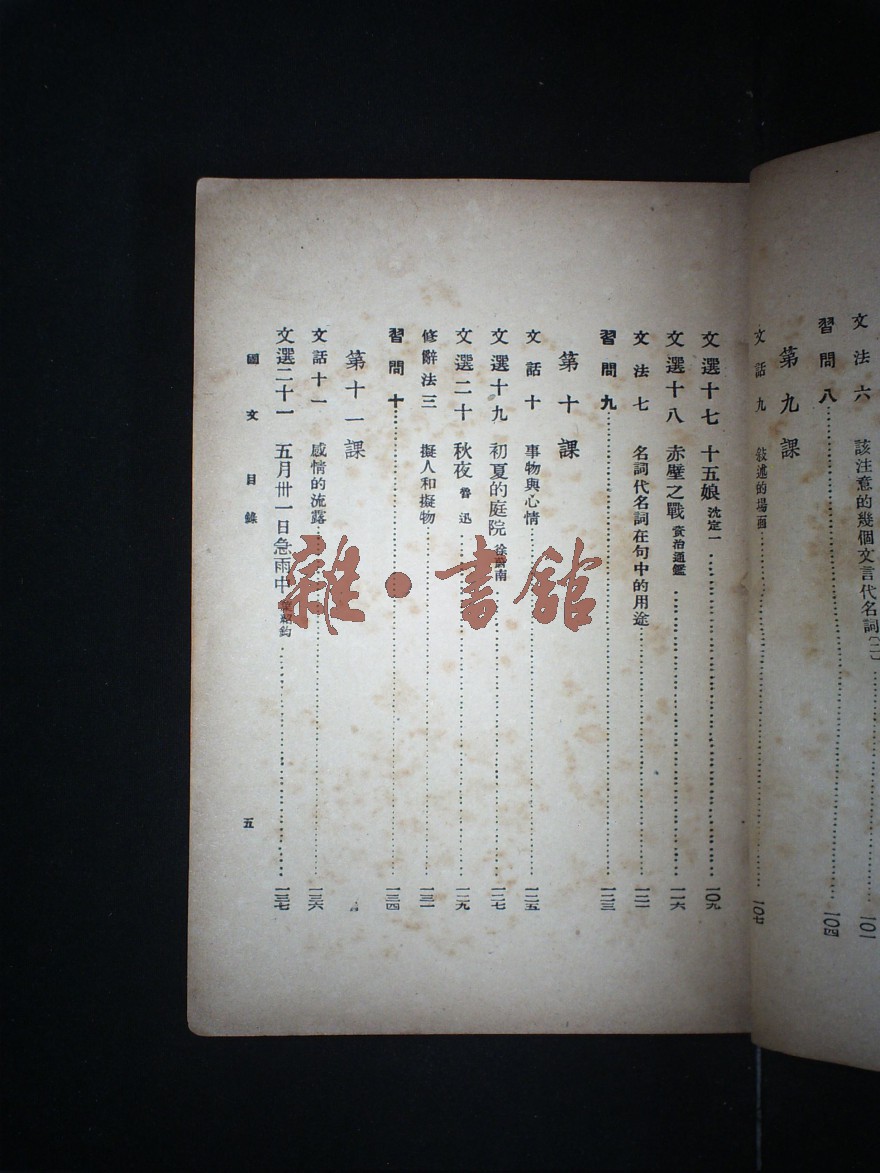 文法六 該注意的幾個文言代名詞(二)……一〇一
習問八……一〇四
第九課
文話九 敍述的場面……一〇七
文選十七 十五娘 沈定一……一〇九
文選十八 赤壁之戰 資治通鑑……一一六
文法七 名詞代名詞在句中的用途……一二一
習問九……一二三
第十課
文話十 事物與心情……一二五
文選十九 初夏的庭院 徐蔚南……一二七
文選二十 秋夜 魯迅……一二九
修辭法三 擬人和擬物……一三一
習問十……一三四
第十一課
文話十一 感情的流露……一三六
文選二十一 五月卅一日急雨中 葉紹鈞……一三七
國文 目錄 五
雜·書館